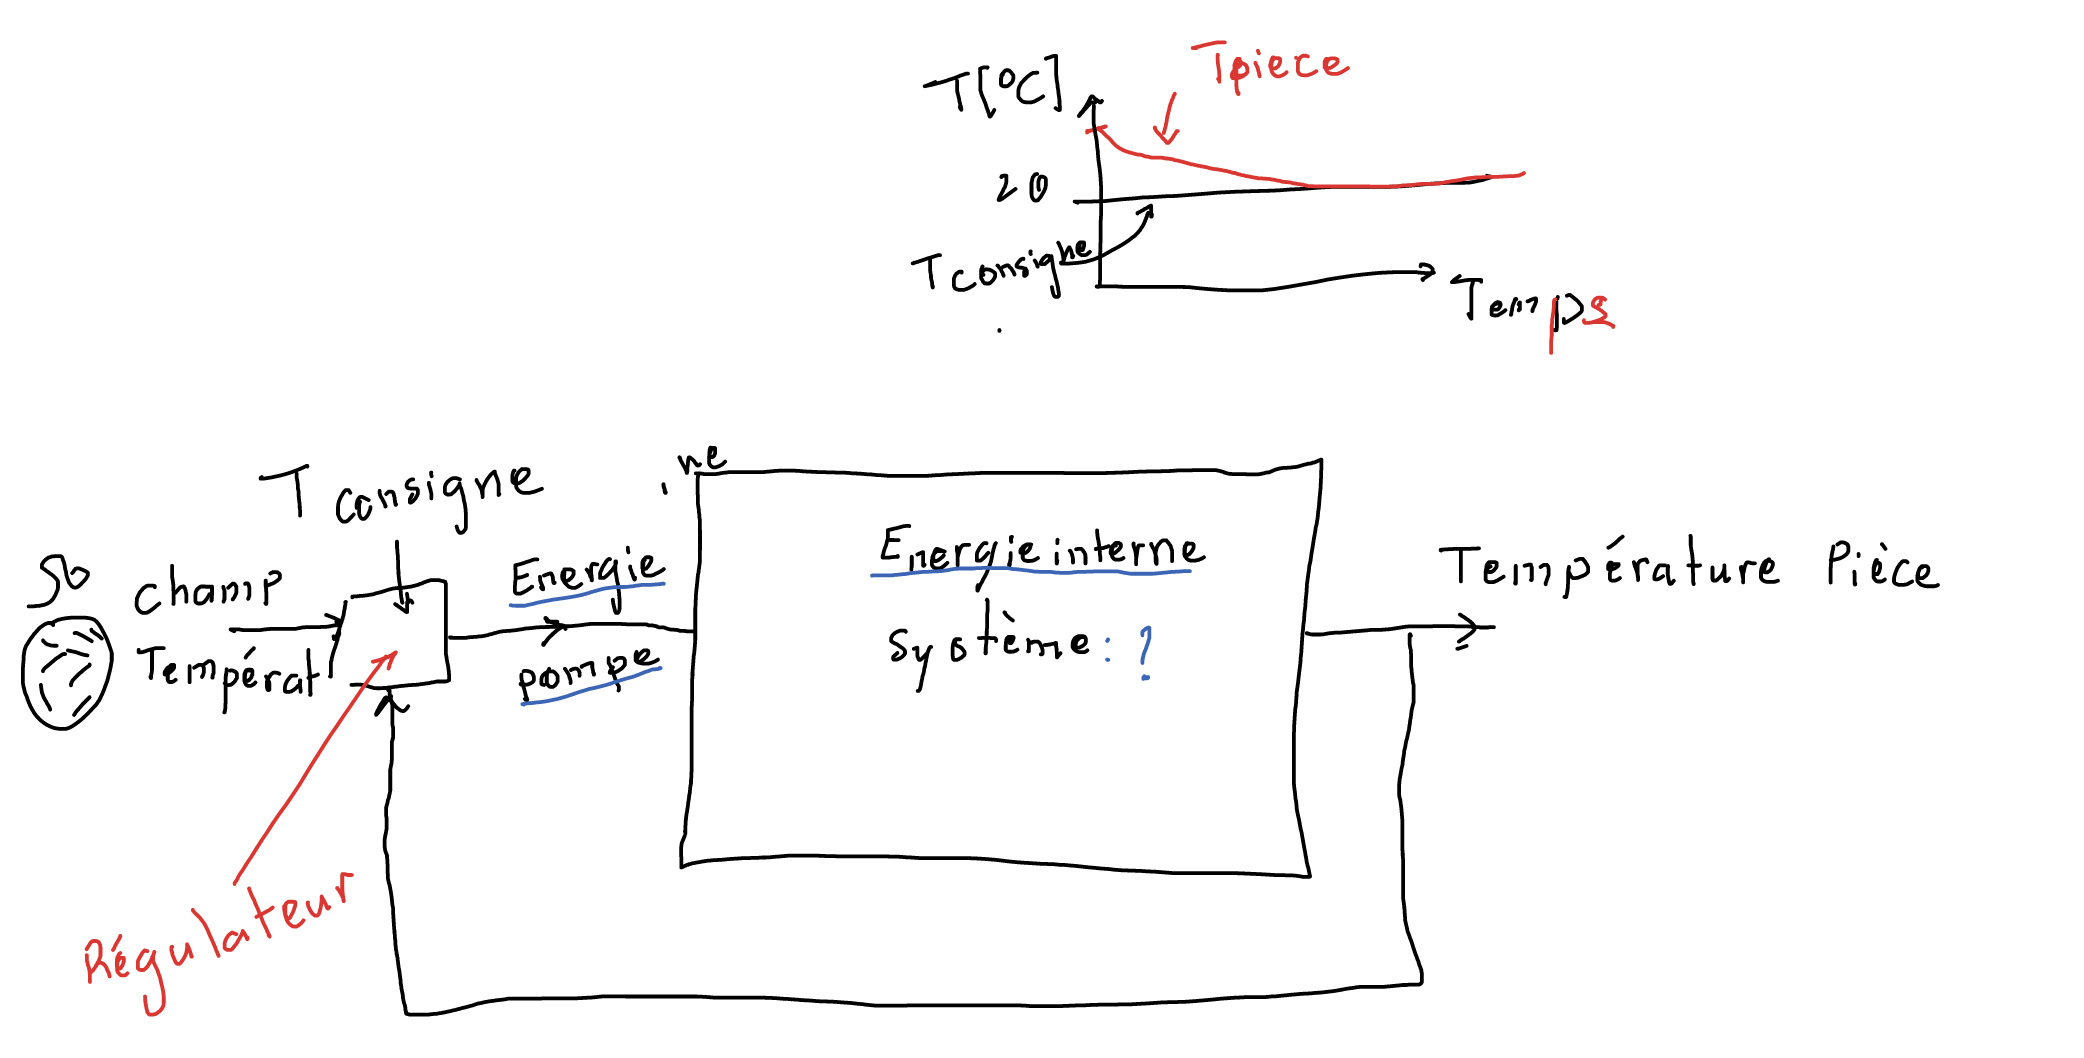 T[°C]
Tpiece
20
Tconsigne
Temps
ne
T consigne
champ
Températ
Energie
pompe
Energie interne
système : ?
Température Pièce
Régulateur